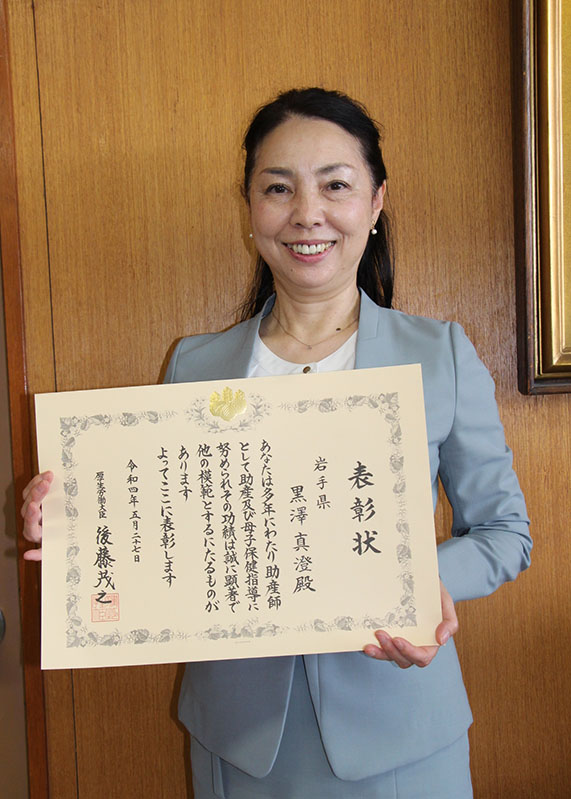 表彰状
岩手県
黒澤真澄殿
あなたは多年にわたり助産師
として助産及び母子保健指導に
努められその功績は誠に顕著で
他の模範とするにたるものが
あります
よってここに表彰します
令和四年五月二十七日
厚生労働大臣 後藤茂之